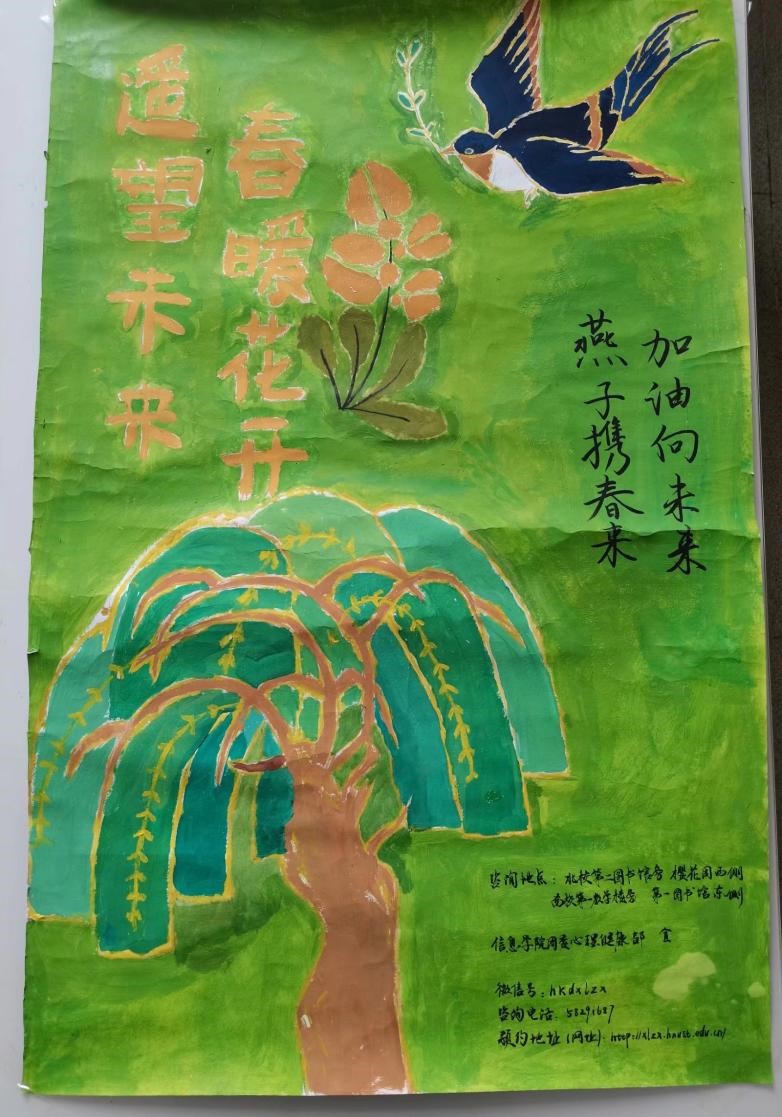 春暖花开
遥望未来
加油向未来
燕子携春来
咨询地点：北校第二图书馆旁 樱花园西侧
南校第一教学楼旁 第一图书馆东侧
信息学院团委心理健康部 宣
微信号：hkdxlzx
咨询电话：58291687
预约地址(网址)：http://xlzx.hnust.edu.cn/